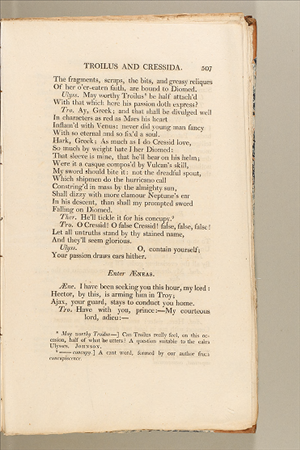 TROILUS AND CRESSIDA. 207
The fragments, scraps, the bits, and greasy reliques
Of her o'er-eaten faith, are bound to Diomed.
Ulyss. May worthy Troilus⁸ be half attach'd
With that which here his passion doth express?
Tro. Ay, Greek; and that shall be divulged well
In characters as red as Mars his heart
Inflam'd with Venus: never did young man fancy
With so eternal and so fix'd a soul.
Hark, Greek; As much as I do Cressid love,
So much by weight hate I her Diomed:
That sleeve is mine, that he'll bear on his helm;
Were it a casque compos'd by Vulcan's skill,
My sword should bite it: not the dreadful spout,
Which shipmen do the hurricano call
Constring'd in mass by the almighty sun,
Shall dizzy with more clamour Neptune's ear
In his descent, than shall my prompted sword
Falling on Diomed.
Ther. He'll tickle it for his concupy.⁹
Tro. O Cressid! O false Cressid! false, false, false!
Let all untruths stand by thy stained name,
And they'll seem glorious.
Ulyss. O, contain yourself;
Your passion draws ears hither.
Enter ÆNEAS.
Æne. I have been seeking you this hour, my lord:
Hector, by this, is arming him in Troy;
Ajax, your guard, stays to conduct you home.
Tro. Have with you, prince:—My courteous
lord, adieu:—
⁸ May worthy Troilus—] Can Troilus really feel, on this oc-
casion, half of what he utters? A question suitable to the calm
Ulysses. JOHNSON.
⁹ —— concupy.] A cant word, formed by our author from
concupiscence.